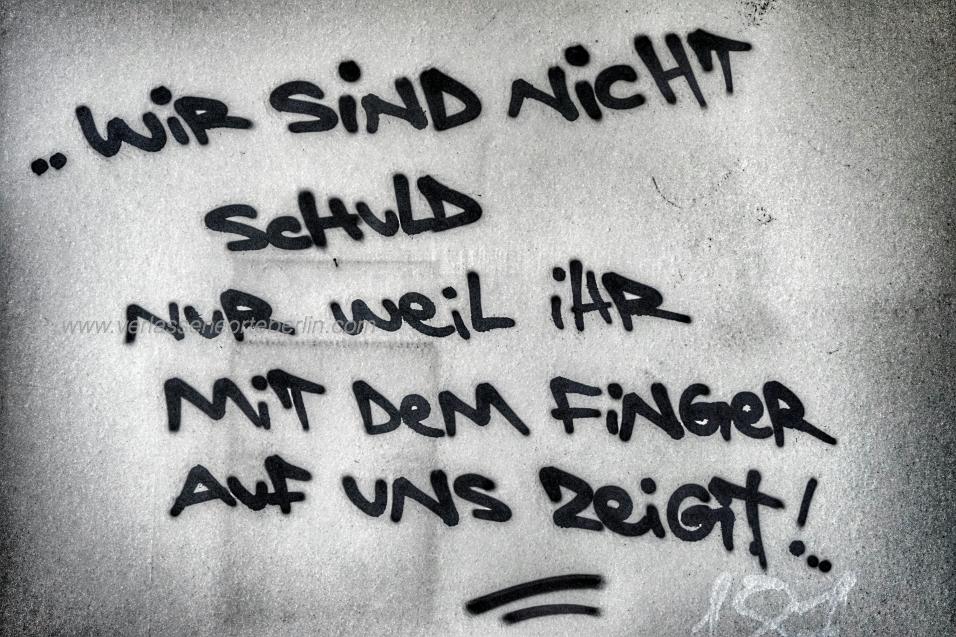 ..WiR SiND NicHT
ScHuLD
NUR weiL iHR
MiT DeM FiNGeR
AuF UNS ZeiGT!..
www.verlasseneorteberlin.com
181